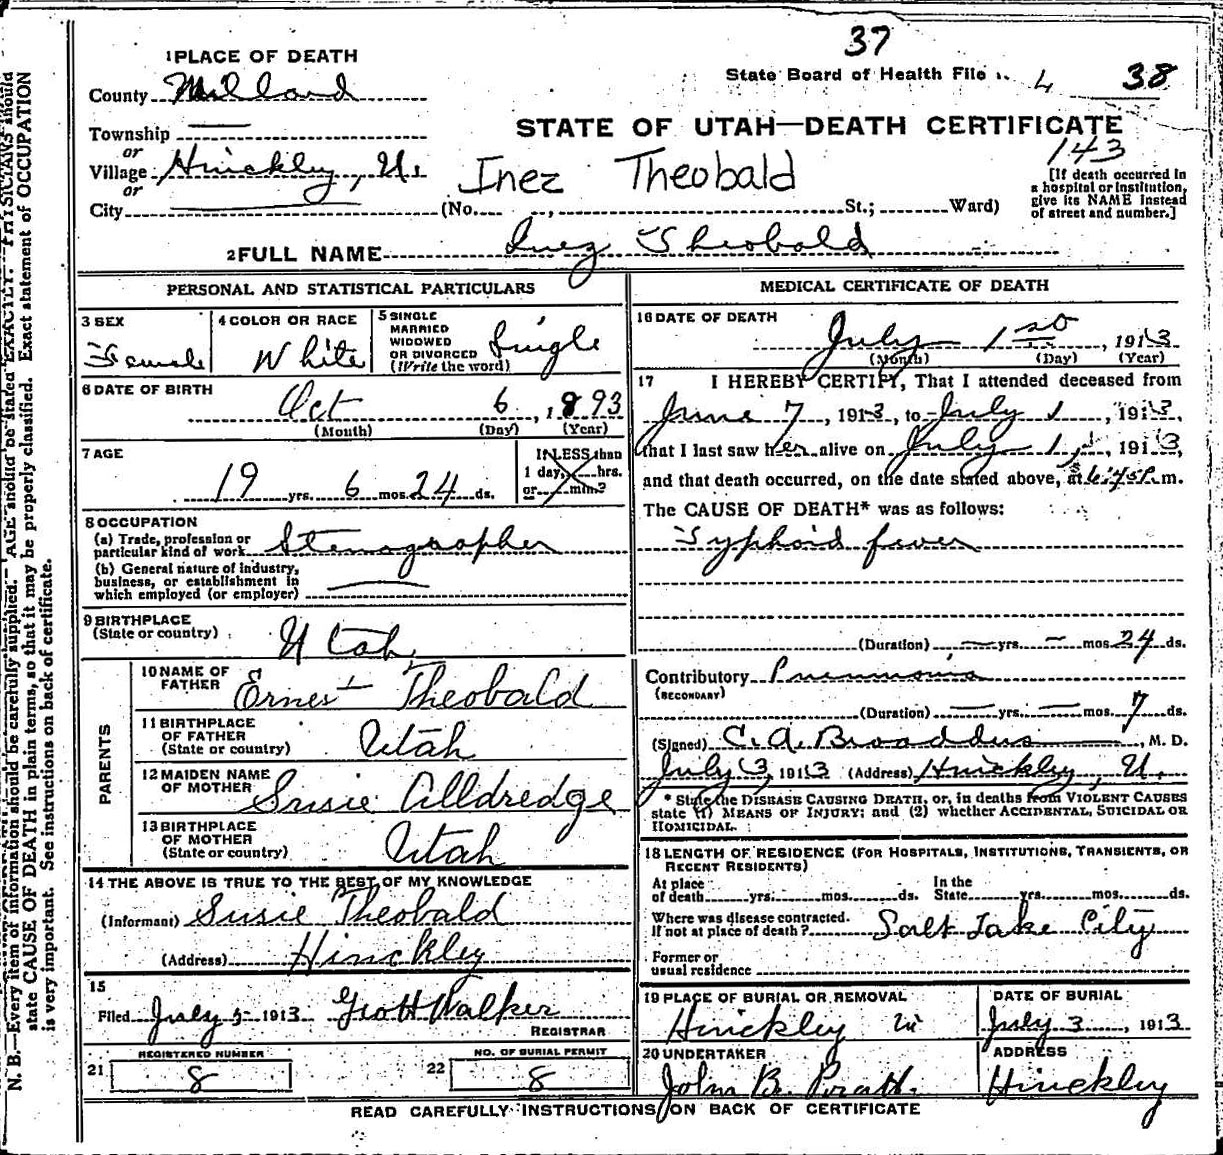 37
1 PLACE OF DEATH
State Board of Health File 4 38
County Millard
STATE OF UTAH—DEATH CERTIFICATE
Township
or
143
Village Hinckley, U.
Inez Theobald
or
[If death occurred in a hospital or institution, give its NAME instead of street and number.]
City (No. , St.; Ward)
2 FULL NAME Inez Theobald
PERSONAL AND STATISTICAL PARTICULARS
3 SEX
Female
4 COLOR OR RACE
White
5 SINGLE
MARRIED
WIDOWED
OR DIVORCED
(Write the word)
Single
6 DATE OF BIRTH
Oct 6, 1893
(Month) (Day) (Year)
7 AGE
19 yrs. 6 mos. 24 ds.
If LESS than
1 day, hrs.
or min.?
8 OCCUPATION
(a) Trade, profession or
particular kind of work Stenographer
(b) General nature of industry,
business, or establishment in
which employed (or employer)
9 BIRTHPLACE
(State or country) Utah
PARENTS
10 NAME OF
FATHER Ernest Theobald
11 BIRTHPLACE
OF FATHER
(State or country) Utah
12 MAIDEN NAME
OF MOTHER Susie Alldredge
13 BIRTHPLACE
OF MOTHER
(State or country) Utah
14 THE ABOVE IS TRUE TO THE BEST OF MY KNOWLEDGE
(Informant) Susie Theobald
(Address) Hinckley
15
Filed July 5 1913 Geo H Walker
REGISTRAR
21 REGISTERED NUMBER
8
22 NO. OF BURIAL PERMIT
8
MEDICAL CERTIFICATE OF DEATH
16 DATE OF DEATH
July 1st, 1913
(Month) (Day) (Year)
17 I HEREBY CERTIFY, That I attended deceased from
June 7, 1913, to July 1, 1913,
that I last saw her alive on July 1, 1913,
and that death occurred, on the date stated above, at 6:45P. m.
The CAUSE OF DEATH* was as follows:
Typhoid fever
(Duration) yrs. mos. 24 ds.
Contributory Pneumonia
(SECONDARY)
(Duration) yrs. mos. 7 ds.
(Signed) C. A. Broaddus, M. D.
July 3, 1913 (Address) Hinckley, U.
* State the DISEASE CAUSING DEATH, or, in deaths from VIOLENT CAUSES
state (1) MEANS OF INJURY; and (2) whether ACCIDENTAL, SUICIDAL OR
HOMICIDAL.
18 LENGTH OF RESIDENCE (FOR HOSPITALS, INSTITUTIONS, TRANSIENTS, OR
RECENT RESIDENTS)
At place
of death yrs. mos. ds.
In the
State yrs. mos. ds.
Where was disease contracted.
If not at place of death? Salt Lake City
Former or
usual residence
19 PLACE OF BURIAL OR REMOVAL
Hinckley
DATE OF BURIAL
July 3, 1913
20 UNDERTAKER
John B. Pratt
ADDRESS
Hinckley
READ CAREFULLY INSTRUCTIONS ON BACK OF CERTIFICATE
N. B.—Every item of information should be carefully supplied. AGE should be stated EXACTLY. PHYSICIANS should
state CAUSE OF DEATH in plain terms, so that it may be properly classified. Exact statement of OCCUPATION
is very important. See instructions on back of certificate.